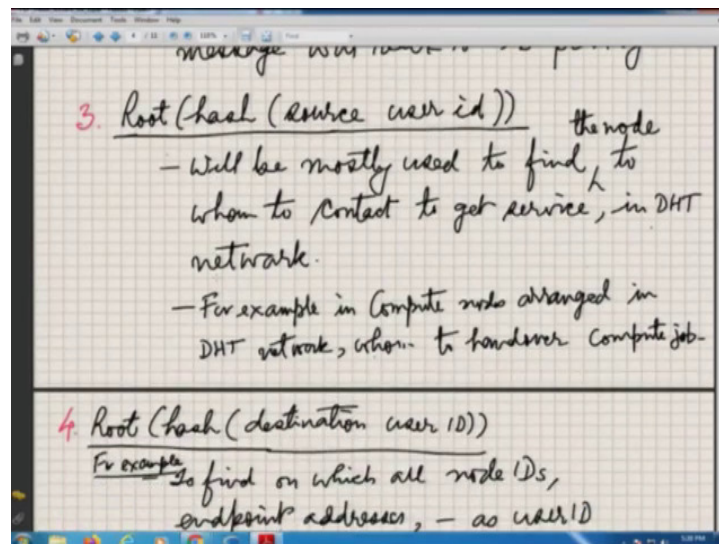 File Edit View Document Tools Window Help
4 / 11 110% Find
message
3. Root (hash (source user id))
the node
- Will be mostly used to find, to
whom to contact to get service, in DHT
network.
- For example in Compute nodes arranged in
DHT network, whom to handover compute job-
4. Root (hash (destination user ID))
For example
To find on which all node IDs,
endpoint addresses, - as user ID
5:28 PM